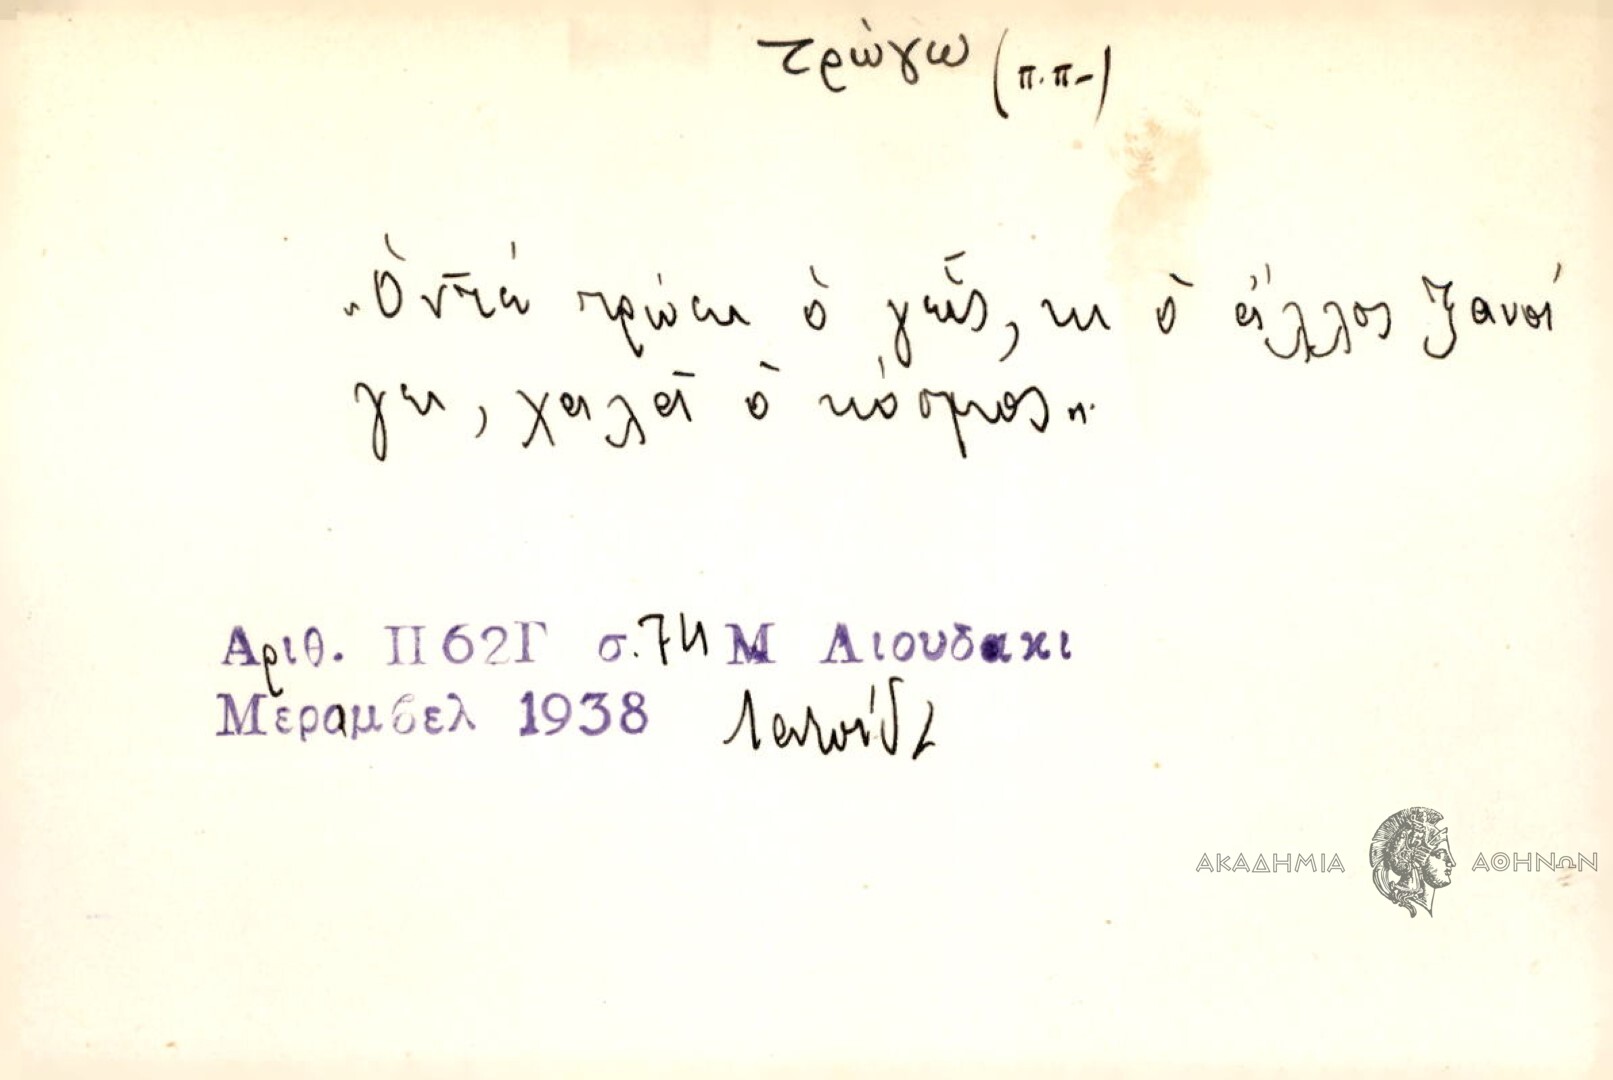 τρώγω (π.π-)
"Ὀντά τρώει ὁ γεῖς, κι ὁ ἄλλος ξανοί
γει, χαλᾶ ὁ κόσμος".
Αριθ. Π62Γ σ.74 Μ Λιουδακι
Μεραμβελ 1938 Λατσίδα
ΑΚΑΔΗΜΙΑ ΑΘΗΝΩΝ